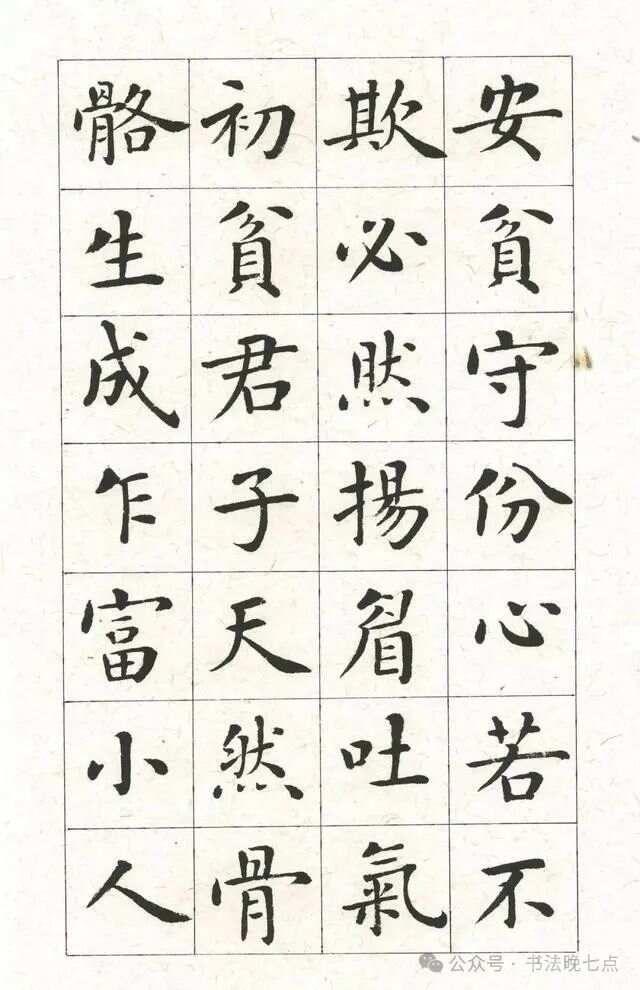 安貧守份心若不
欺必然揚眉吐氣
初貧君子天然骨
骼生成乍富小人
公众号 · 书法晚七点